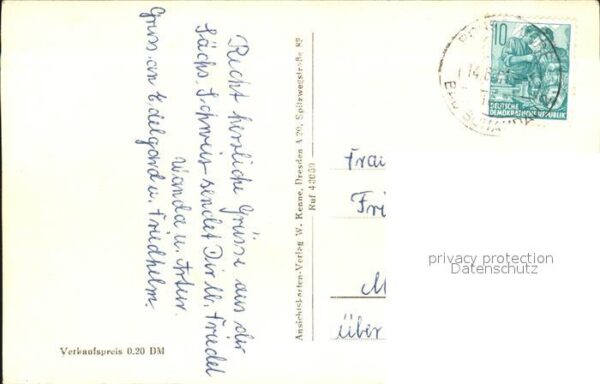 Recht herzliche Grüsse aus der
Sächs. Schweiz sendet Dir u. Friedel
Wanda u. Artur.
Gruss an Edelgard u. Friedhelm.
Verkaufspreis 0.20 DM
Ansichtskarten-Verlag W. Kenne, Dresden A 20, Spitzwegstraße 82
Ruf 43059
10
DEUTSCHE
DEMOKRATISCHE REPUBLIK
14.8.
BAD SCHANDAU
über
privacy protection
Datenschutz